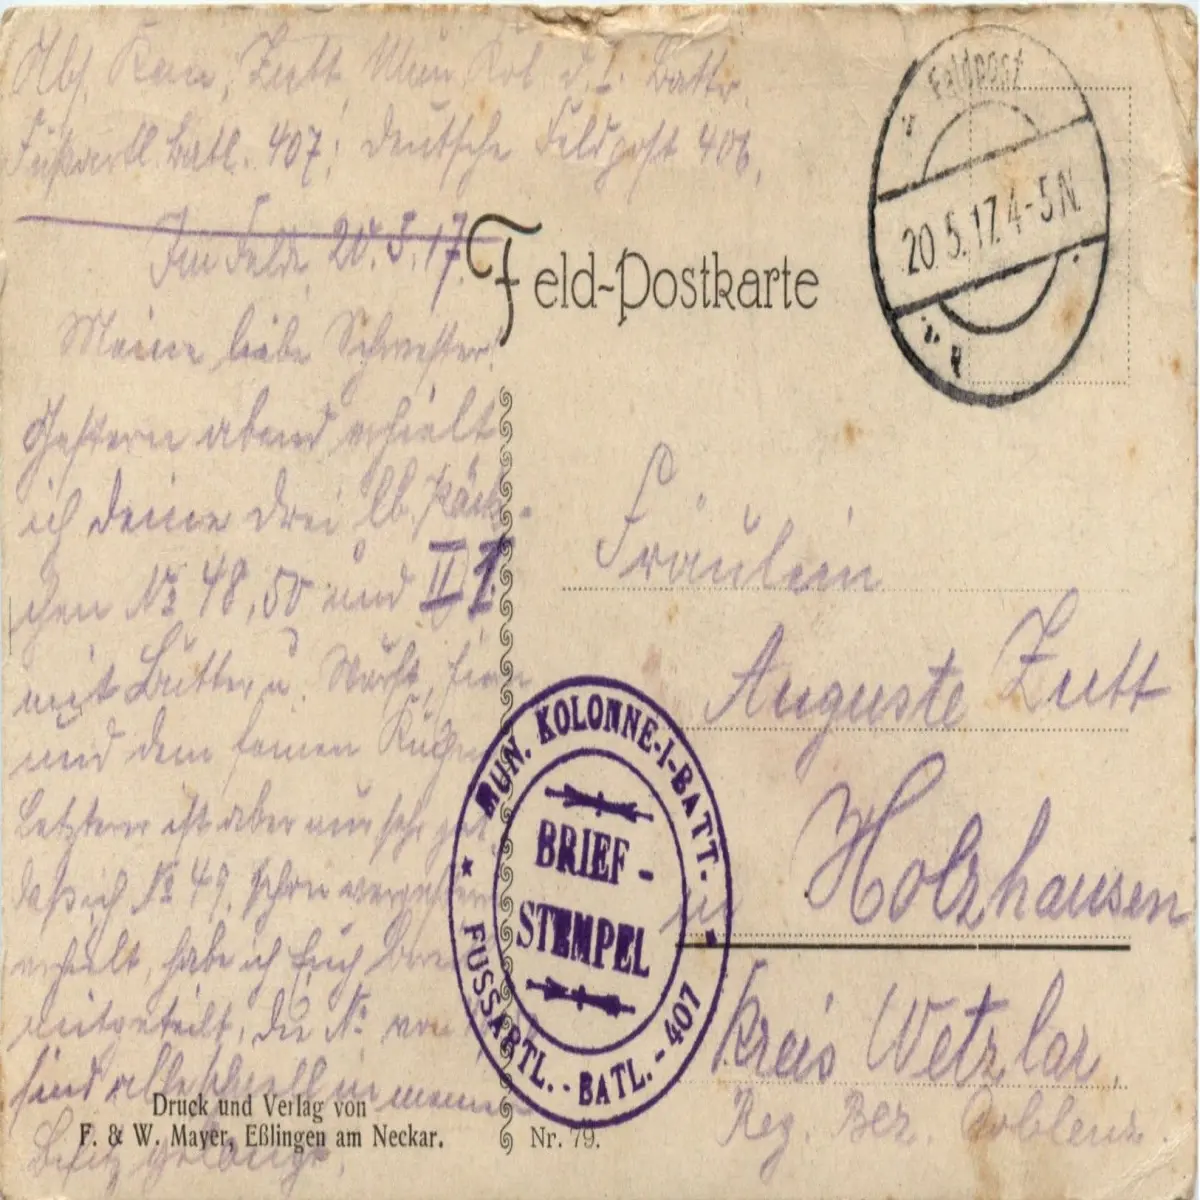 Abs. Kan. Zutt Mun. Kol. d. I. Battr.
Fußartl. Batl. 407. Deutsche Feldpost 406.
Im Felde, 20.5.17.
Feld-Postkarte
Feldpost
20.5.17.4-5N.
Meine liebe Schwester!
Gestern abend erhielt
ich deine drei lb. Päck-
chen No 48, 50 und II 1
mit Butter, u. Wurst,
und dem feinen Kuchen
Letzterer ist aber nur sehr gut
daß ich No 49, schon
erhielt, habe ich Euch
mitgeteilt, die No. von
sind alle schnell in meinen
Besitz gelangt.
Fräulein
Auguste Zutt
in Holzhausen
Kreis Wetzlar,
Reg. Bez. Coblenz.
MUN. KOLONNE-I-BATT.
BRIEF-
STEMPEL
FUSSARTL.-BATL.-407
Druck und Verlag von
F. & W. Mayer, Eßlingen am Neckar.
Nr. 79.